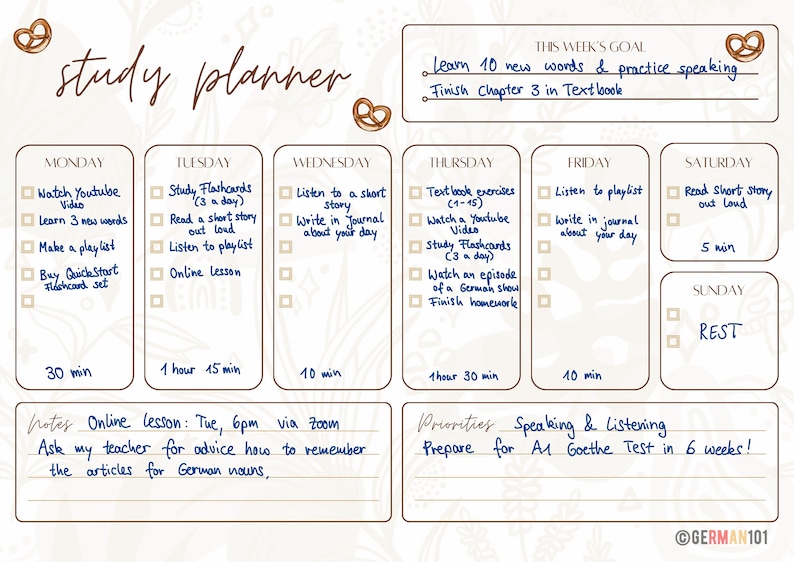 study planner
THIS WEEK'S GOAL
Learn 10 new words & practice speaking
Finish Chapter 3 in Textbook
MONDAY
Watch Youtube
Video
Learn 3 new words
Make a playlist
Buy QuickStart
Flashcard set
30 min
TUESDAY
Study Flashcards
(3 a day)
Read a short story
out loud
Listen to playlist
Online lesson
1 hour 15 min
WEDNESDAY
Listen to a short
story
Write in Journal
about your day
10 min
THURSDAY
Textbook exercises
(1-15)
Watch a Youtube
Video
Study Flashcards
(3 a day)
Watch an episode
of a German show
Finish homework
1 hour 30 min
FRIDAY
Listen to playlist
Write in journal
about your day
10 min
SATURDAY
Read short story
out loud
5 min
SUNDAY
REST
Notes Online lesson: Tue, 6pm via zoom
Ask my teacher for advice how to remember
the articles for German nouns.
Priorities Speaking & Listening
Prepare for A1 Goethe Test in 6 weeks!
©GERMAN101